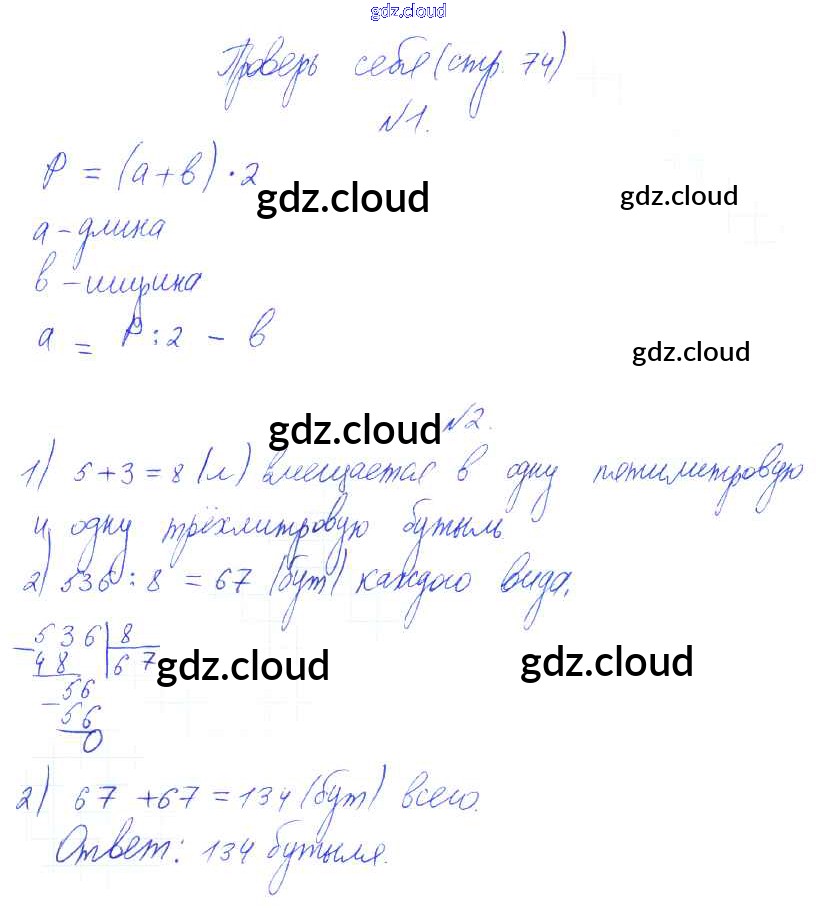 gdz.cloud
Проверь себя (стр. 74)
№1.
P = (a + в) · 2
gdz.cloud
gdz.cloud
a - длина
в - ширина
a = P : 2 - в
gdz.cloud
gdz.cloud
№2.
1) 5 + 3 = 8 (л) вмещается в одну пятилитровую
и одну трёхлитровую бутыль
2) 536 : 8 = 67 (бут) каждого вида.
536 | 8
- 48 | 67
gdz.cloud
gdz.cloud
56
- 56
0
2) 67 + 67 = 134 (бут) всего.
Ответ: 134 бутыля.